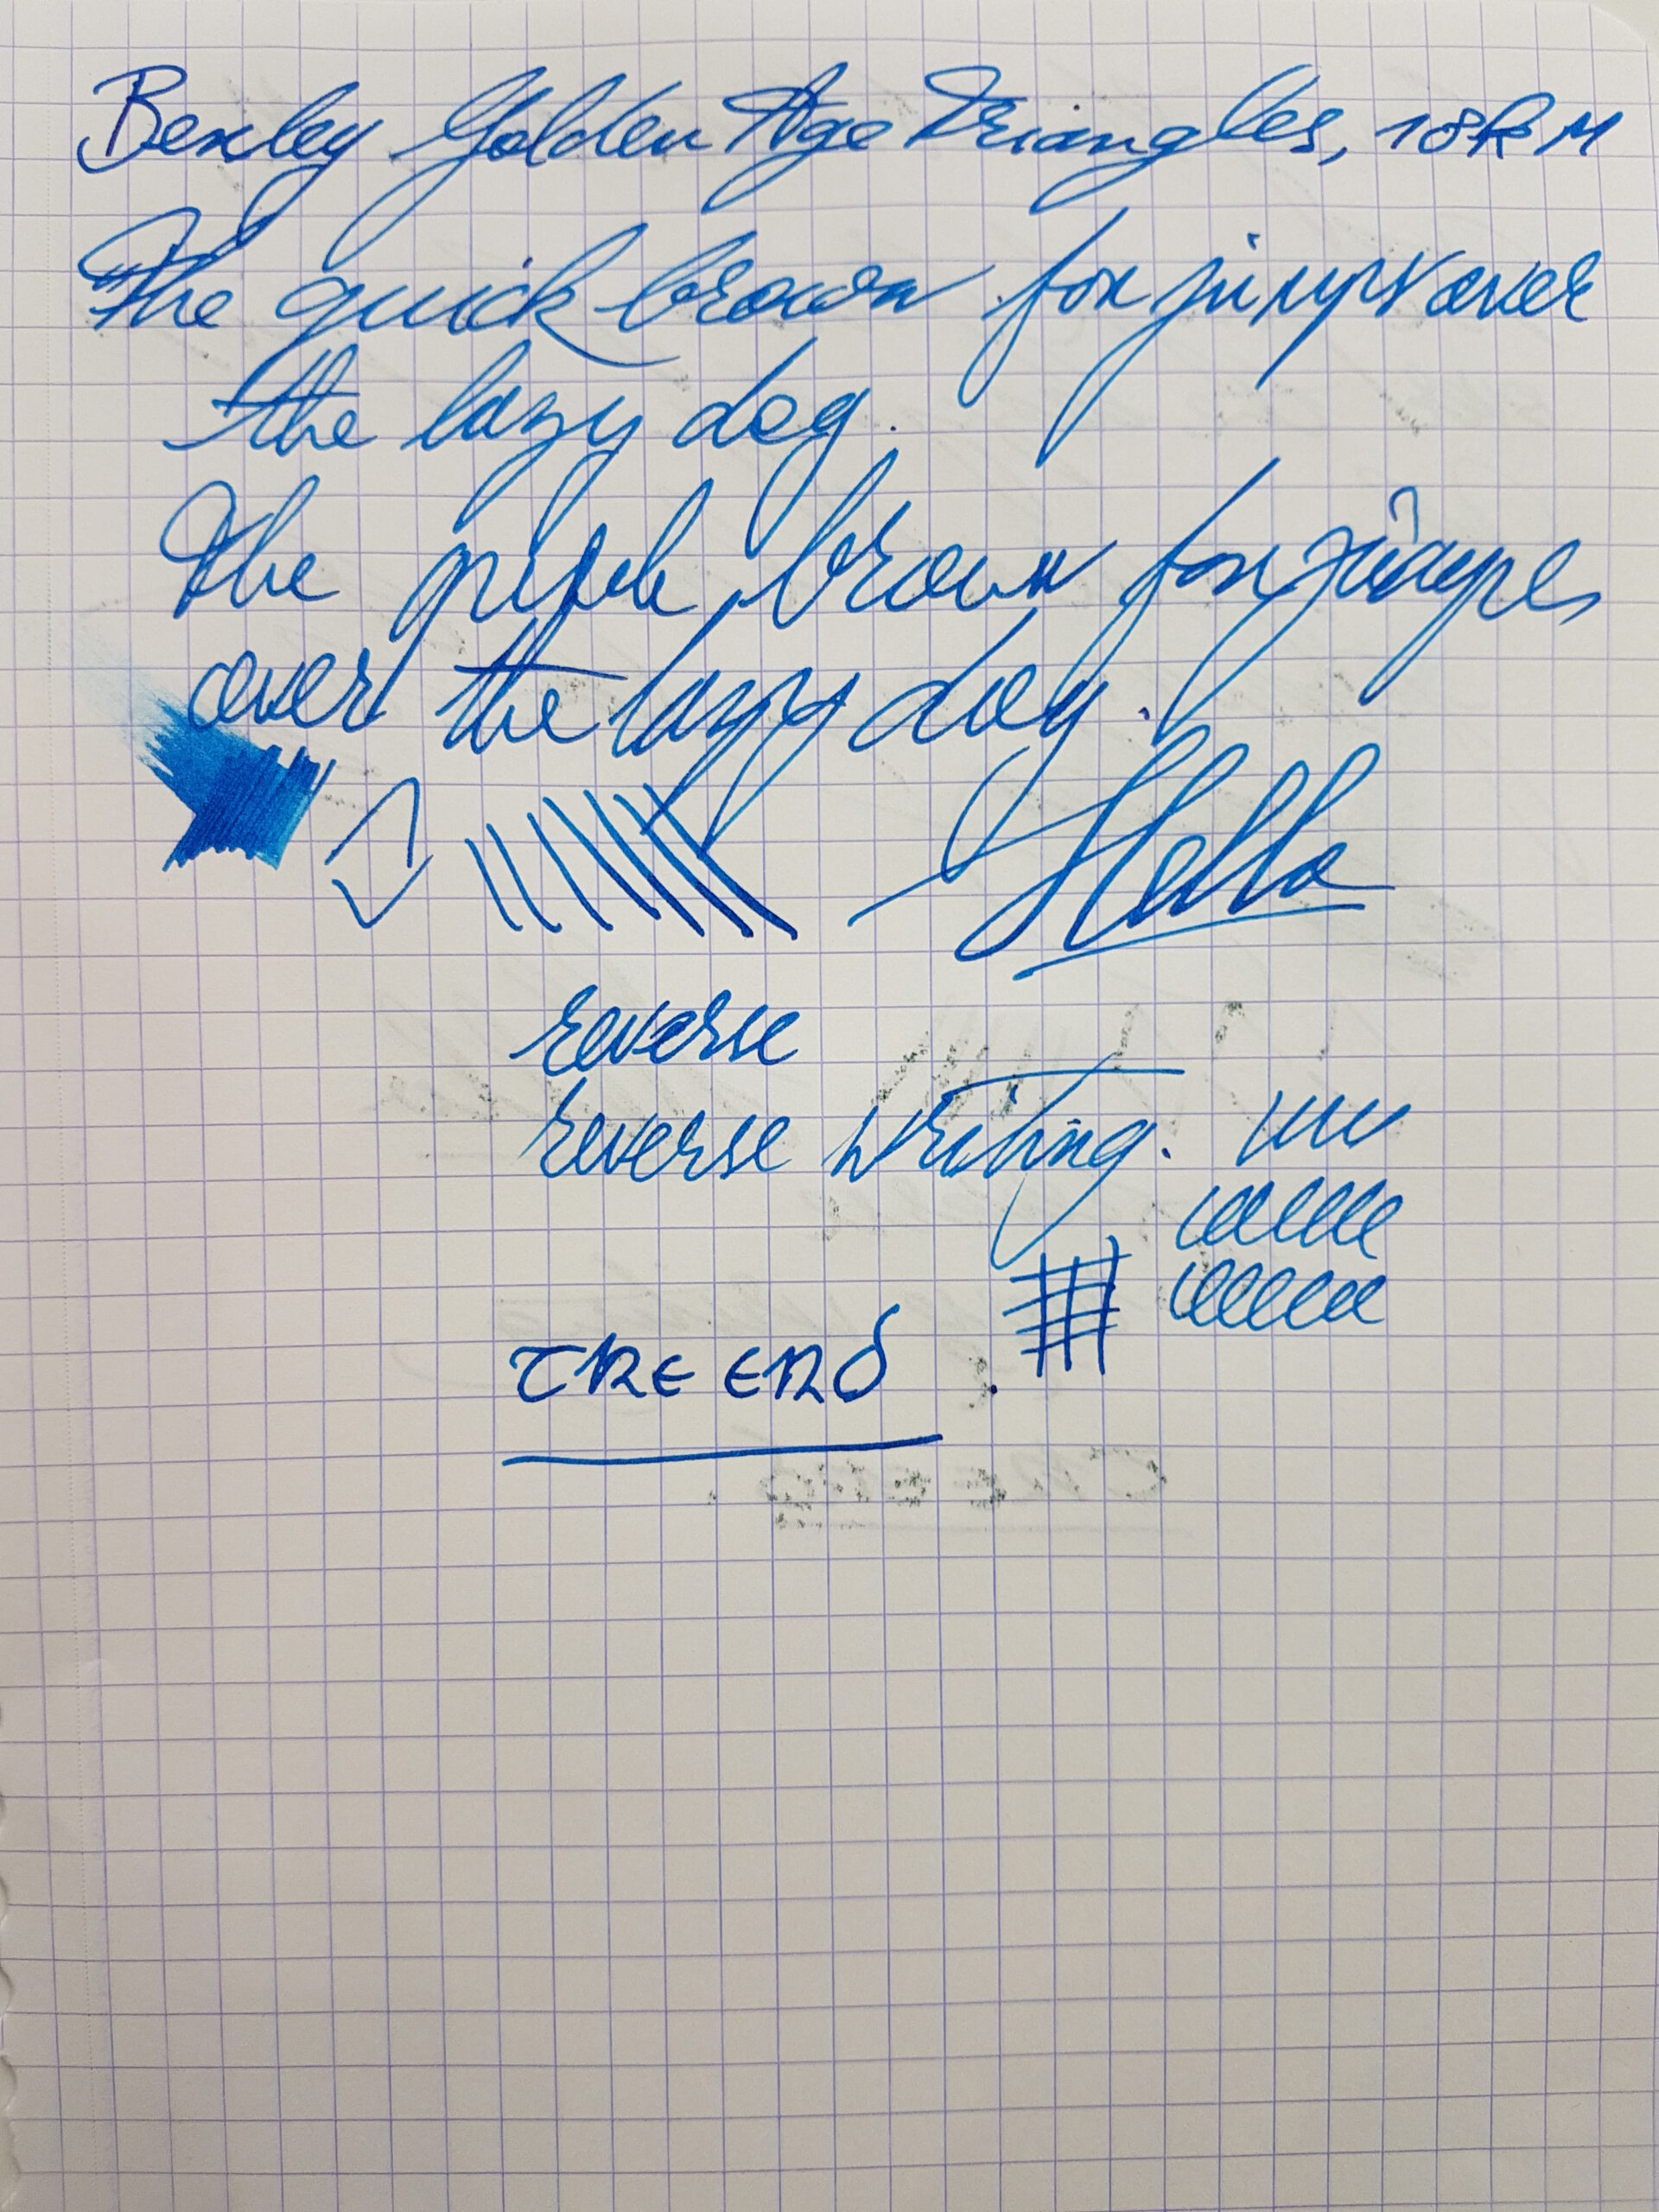 Bexley Golden Age Triangles, 18K M
The quick brown fox jumps over
the lazy dog.
The brown fox jumps
over the lazy dog.
Hello
reverse
reverse writing.
THE END